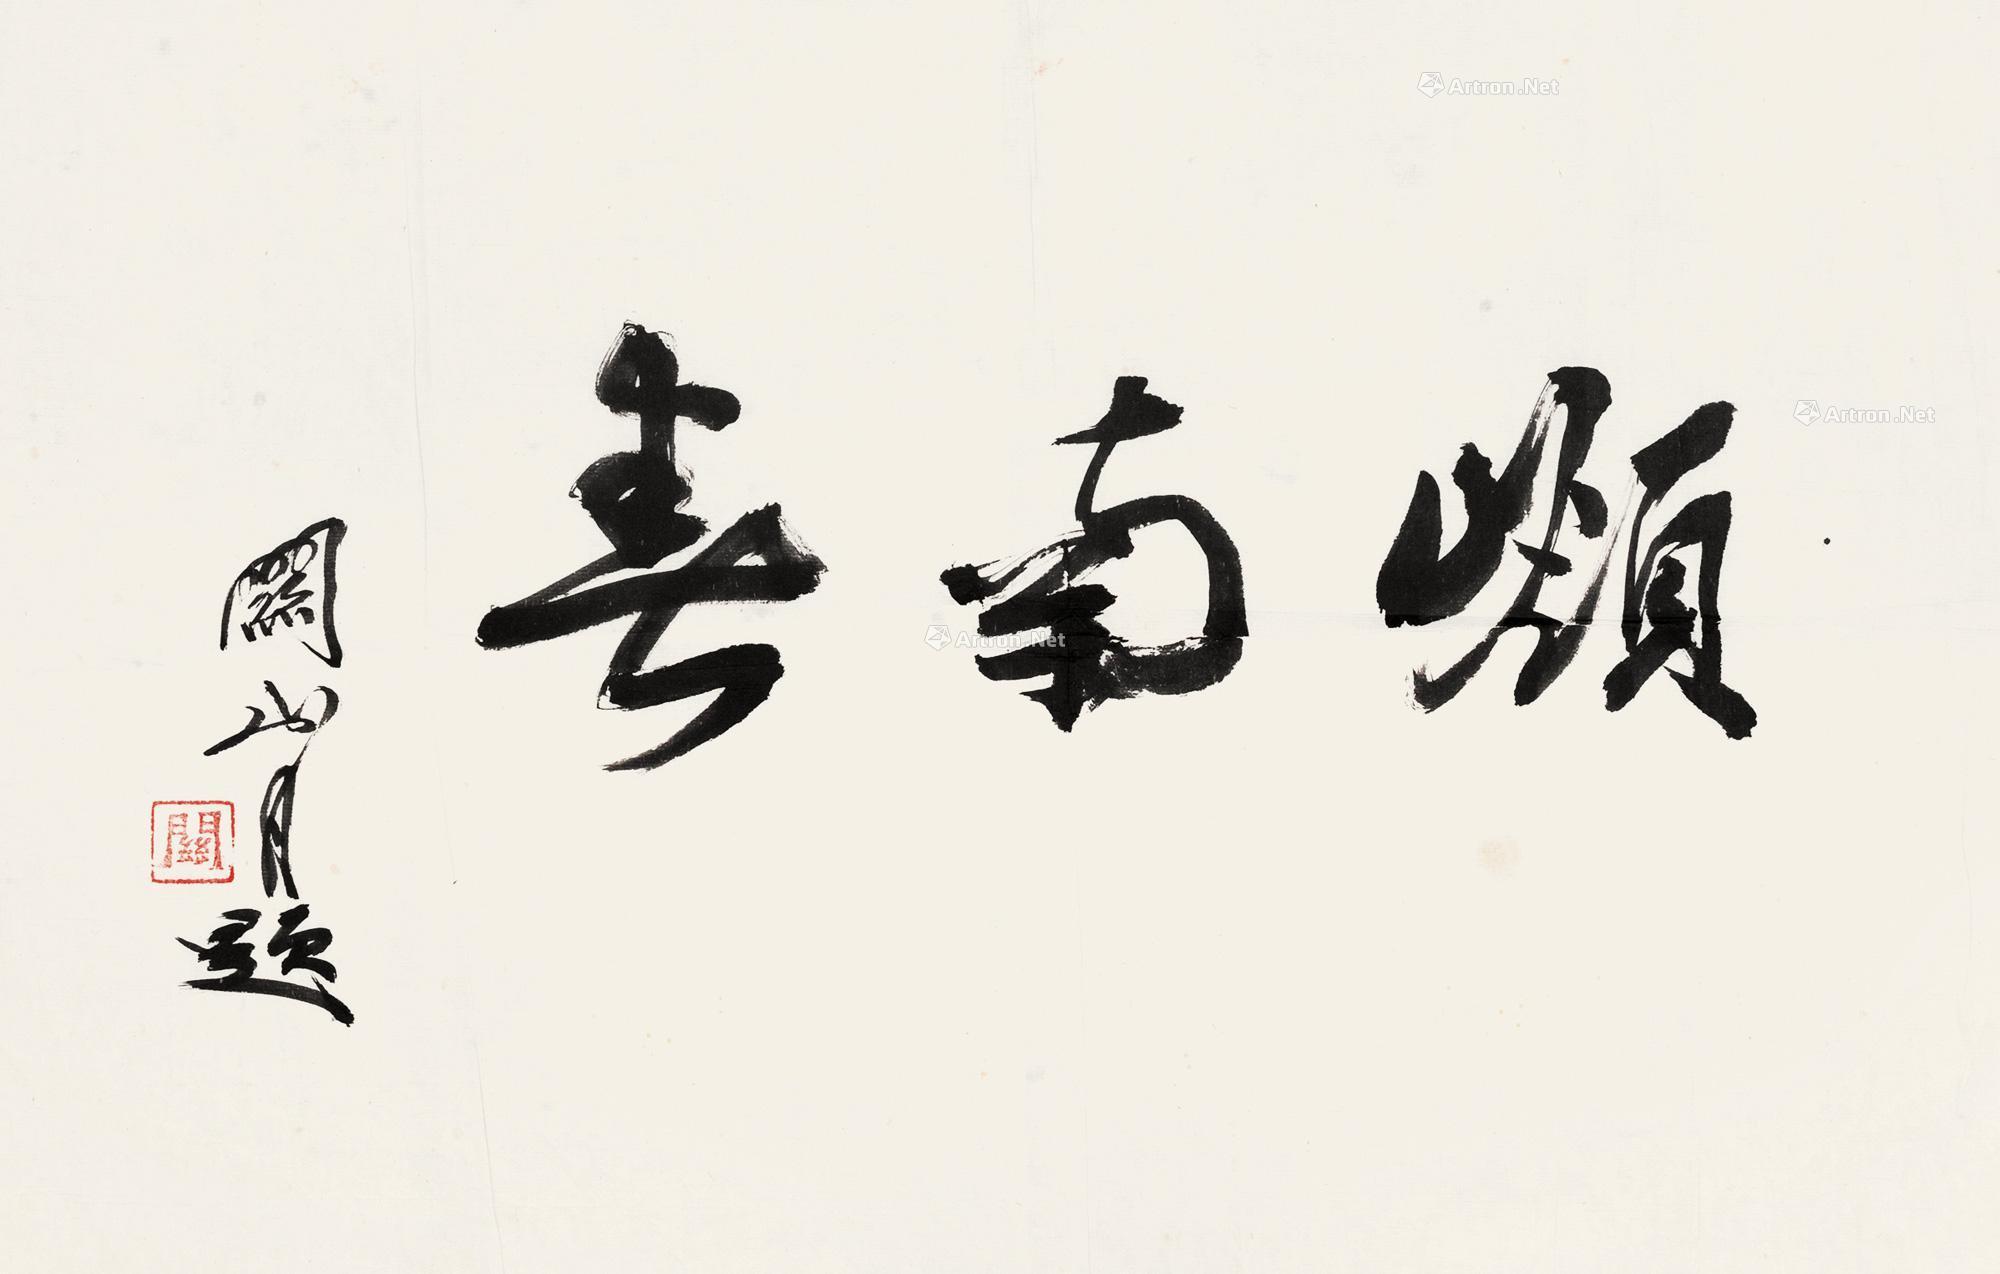 嶺南春
關山月題
關
Artron.Net
Artron.Net
Artron.Net